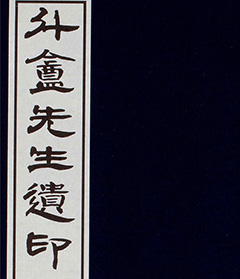 斗盦先生遺印